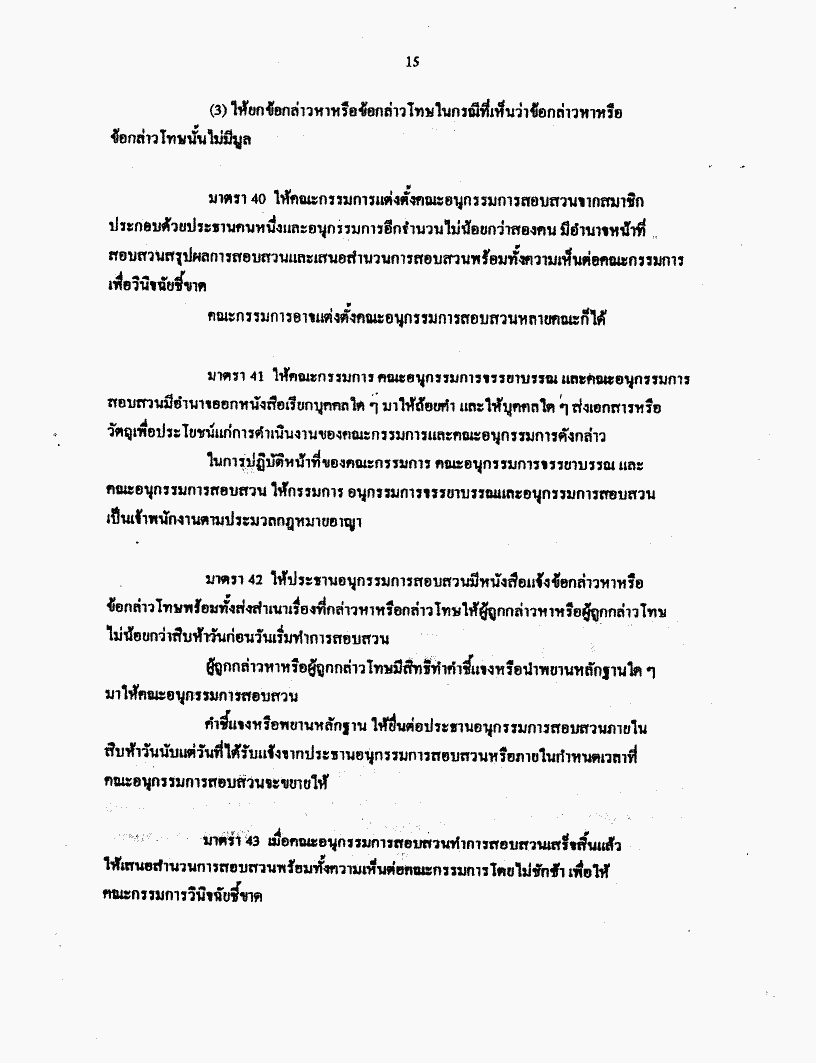 15
(3) ให้ยกข้อกล่าวหาหรือข้อกล่าวโทษในกรณีที่เห็นว่าข้อกล่าวหาหรือ
ข้อกล่าวโทษนั้นไม่มีมูล
มาตรา 40 ให้คณะกรรมการแต่งตั้งคณะอนุกรรมการสอบสวนจากสมาชิก
ประกอบด้วยประธานคนหนึ่งและอนุกรรมการอีกจำนวนไม่น้อยกว่าสองคน มีอำนาจหน้าที่
สอบสวนสรุปผลการสอบสวนและเสนอสำนวนการสอบสวนพร้อมทั้งความเห็นต่อคณะกรรมการ
เพื่อวินิจฉัยชี้ขาด
คณะกรรมการอาจแต่งตั้งคณะอนุกรรมการสอบสวนหลายคณะก็ได้
มาตรา 41 ให้คณะกรรมการ คณะอนุกรรมการจรรยาบรรณ และคณะอนุกรรมการ
สอบสวนมีอำนาจออกหนังสือเรียกบุคคลใด ๆ มาให้ถ้อยคำ และให้บุคคลใด ๆ ส่งเอกสารหรือ
วัตถุเพื่อประโยชน์แก่การดำเนินงานของคณะกรรมการและคณะอนุกรรมการดังกล่าว
ในการปฏิบัติหน้าที่ของคณะกรรมการ คณะอนุกรรมการจรรยาบรรณ และ
คณะอนุกรรมการสอบสวน ให้กรรมการ อนุกรรมการจรรยาบรรณและอนุกรรมการสอบสวน
เป็นเจ้าพนักงานตามประมวลกฎหมายอาญา
มาตรา 42 ให้ประธานอนุกรรมการสอบสวนมีหนังสือแจ้งข้อกล่าวหาหรือ
ข้อกล่าวโทษพร้อมทั้งส่งสำเนาเรื่องที่กล่าวหาหรือกล่าวโทษให้ผู้ถูกกล่าวหาหรือผู้ถูกกล่าวโทษ
ไม่น้อยกว่าสิบห้าวันก่อนวันเริ่มทำการสอบสวน
ผู้ถูกกล่าวหาหรือผู้ถูกกล่าวโทษมีสิทธิทำคำชี้แจงหรือนำพยานหลักฐานใด ๆ
มาให้คณะอนุกรรมการสอบสวน
คำชี้แจงหรือพยานหลักฐาน ให้ยื่นต่อประธานอนุกรรมการสอบสวนภายใน
สิบห้าวันนับแต่วันที่ได้รับแจ้งจากประธานอนุกรรมการสอบสวนหรือภายในกำหนดเวลาที่
คณะอนุกรรมการสอบสวนจะขยายให้
มาตรา 43 เมื่อคณะอนุกรรมการสอบสวนทำการสอบสวนเสร็จสิ้นแล้ว
ให้เสนอสำนวนการสอบสวนพร้อมทั้งความเห็นต่อคณะกรรมการโดยไม่ชักช้า เพื่อให้
คณะกรรมการวินิจฉัยชี้ขาด